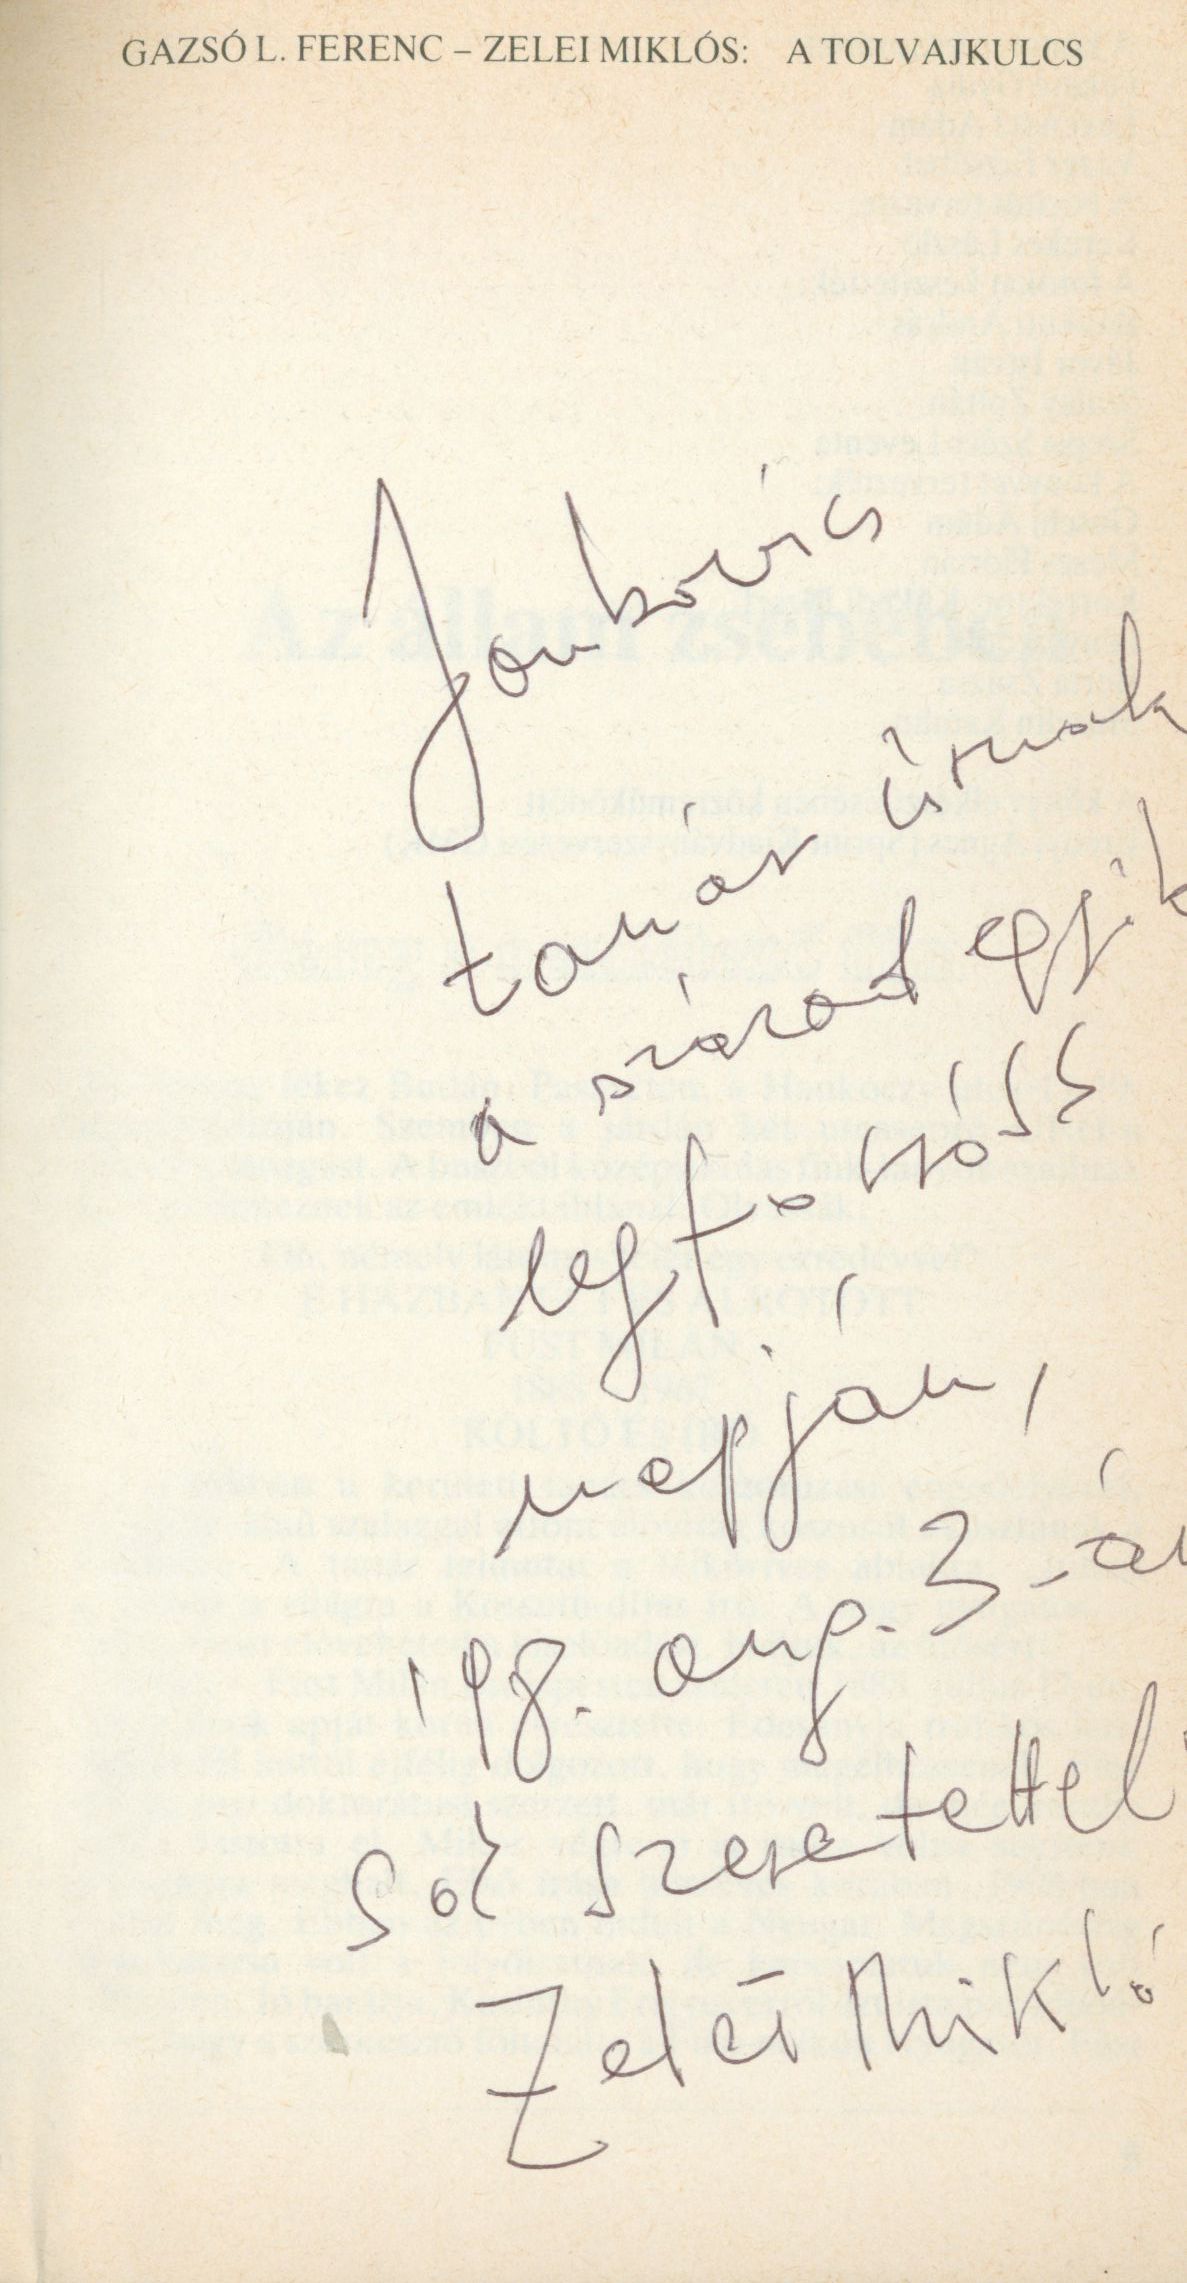 GAZSÓ L. FERENC – ZELEI MIKLÓS: A TOLVAJKULCS
Jankovics
tanár úrnak
a század egyik
legforróbb
napján,
'98. aug. 3-án
sok szeretettel
Zelei Mikló